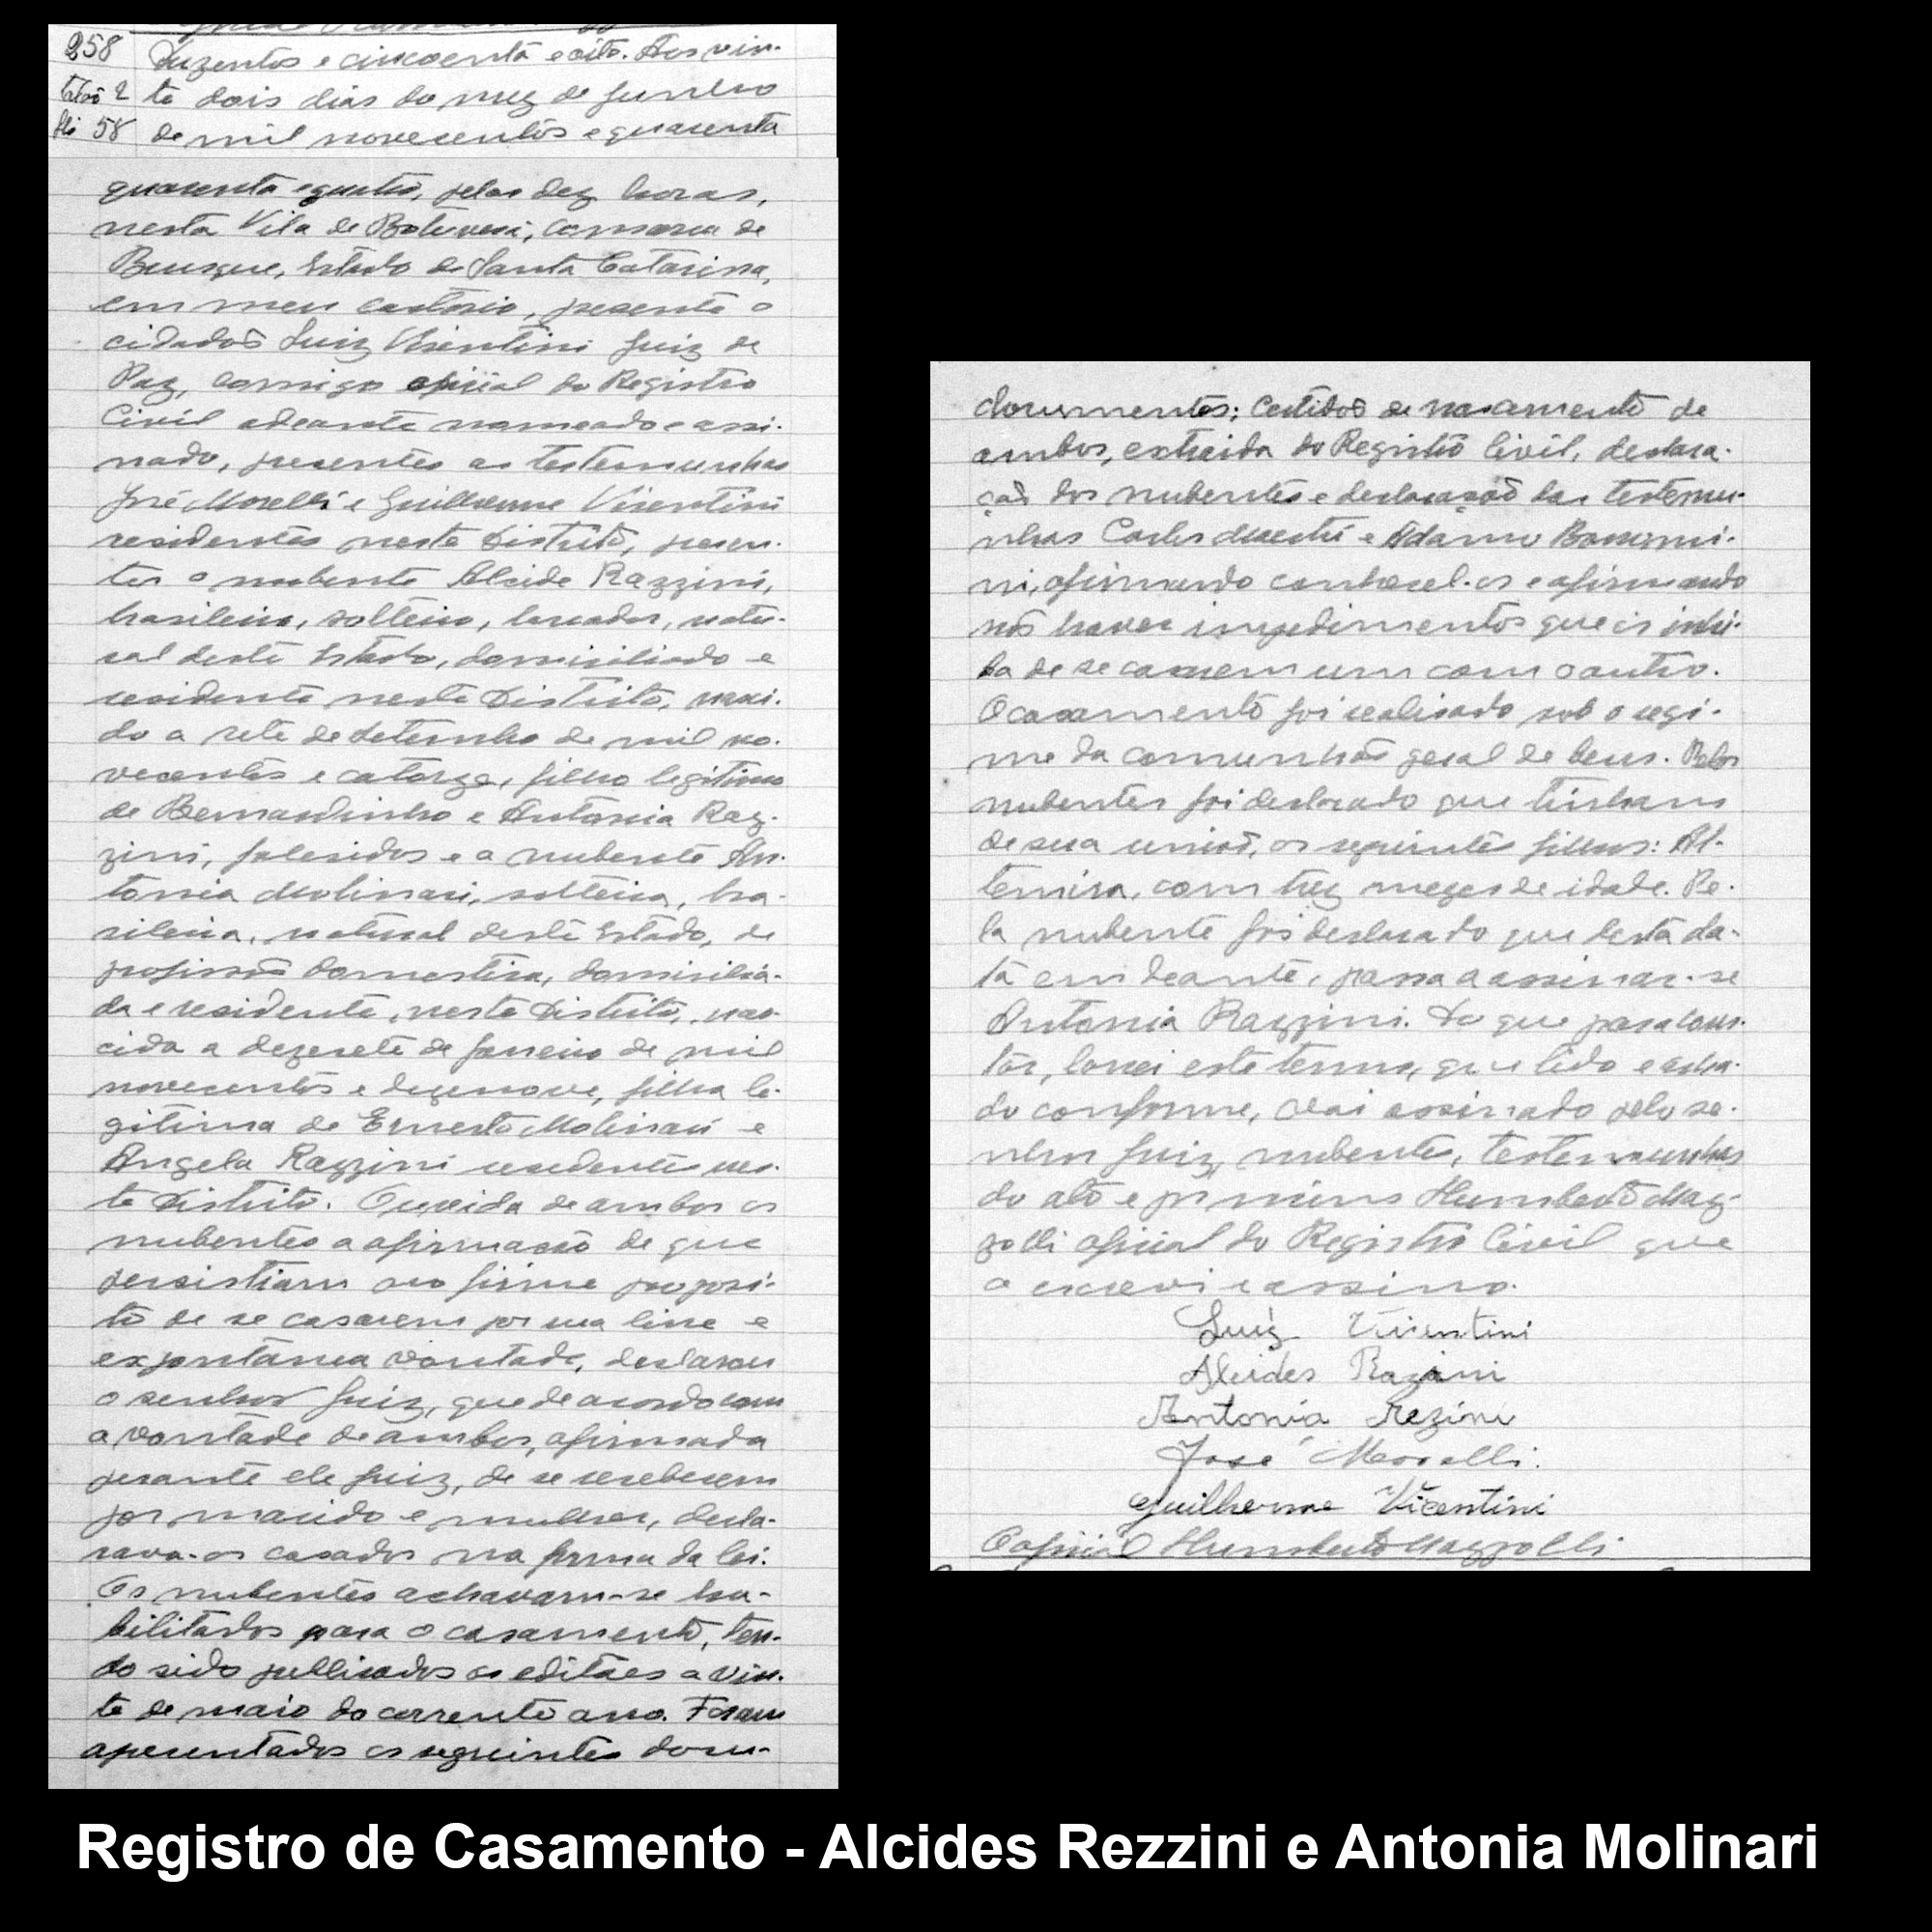 258
Livro 2
fls 58
Duzentos e cincoenta e oito. Aos vin-
te dois dias do mez de Junho
de mil novecentos e quarenta
quarenta e quatro, pelas dez horas,
nesta Vila de Botuverá, comarca de
Brusque, Estado de Santa Catarina,
em meu cartorio, presente o
cidadão Luiz Visentini Juiz de
Paz, comigo oficial do Registro
Civil adeante nomeado e assi-
nado, presentes as testemunhas
José Morelli e Guilherme Visentini
residentes neste Distrito, presen-
tes o nubente Alcide Razzini,
brasileiro, solteiro, lavrador, natu-
ral deste Estado, domiciliado e
residente neste Distrito, nasci-
do a sete de Setembro de mil no-
vecentos e catorze, filho legitimo
de Bernardinho e Antonia Raz-
zini, falesidos e a nubente An-
tonia Molinari, solteira, bra-
sileira, natural deste Estado, de
profissão domestica, domicilia-
da e residente, neste Distrito, nas-
cida a dezesete de Janeiro de mil
novecentos e dezenove, filha le-
gitima de Ernesto Molinari e
Angela Razzini residentes nes-
te Distrito. Ouvida de ambos os
nubentes a afirmação de que
persistiam no firme proposi-
to de se casarem por sua livre e
expontanea vontade, declarou
o senhor Juiz, que de acordo com
a vontade de ambos, afirmada
perante ele Juiz, de se receberem
por marido e mulher, decla-
rava-os casados na forma da lei.
Os nubentes achavam-se ha-
bilitados para o casamento, ten-
do sido publicados os editaes a vin-
te de maio do corrente ano. Foram
apresentados os seguintes docu-
documentos; Certidão de nascimento de
ambos, extraida do Registro Civil, declara-
ção dos nubentes e declaração das testemu-
nhas Carlos Maestri e Adamo Bonomi-
ni, afirmando conhecel-os e afirmando
não haver impedimentos que os inhi-
ba de se casarem um com o outro.
O casamento foi realisado sob o regi-
me da comunhão geral de bens. Pelos
nubentes foi declarado que tinham
de sua união, os seguintes filhos: Al-
temira, com trez mezes de idade. Pe-
la nubente foi declarado que desta da-
ta em deante, passa a assinar-se
Antonia Razzini. Do que para cons-
tar, lavrei este termo, que lido e acha-
do conforme, vai assinado pelo se-
nhor Juiz, nubentes, testemunhas
do ato e por mim Humberto Maz-
zolli oficial do Registro Civil que
o escrevi e assino.
Luiz Vicentini
Alcides Razini
Antonia Rezini
José Morelli.
Guilherme Vicentini
O oficial Humberto Mazzolli
Registro de Casamento - Alcides Rezzini e Antonia Molinari